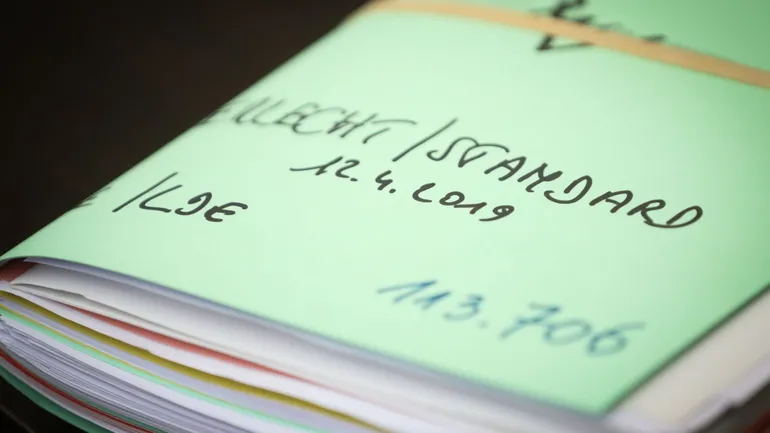 ELLECHT/STANDARD
12.4.2019
/LDE
113.706